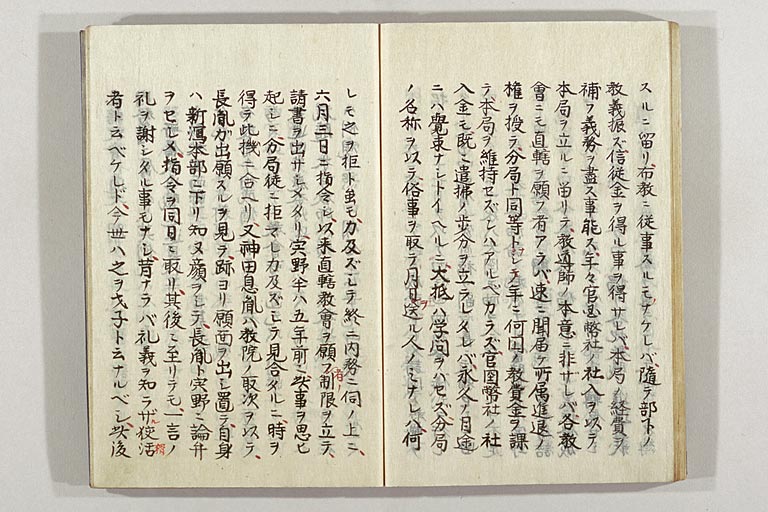 スルニ留リ、布教ニ従事スルモノナケレバ、隨テ部下ノ
教義振ズ、信徒金ヲ得ル事ヲ得サレバ、本局ノ経費ヲ
補フ義務ヲ盡ス事能ズ、年々官国幣社ノ社入ヲ以テ
本局ヲ立ルニ当リテ、教導師ノ本意ニ非ザレバ、各教
會ニモ直轄ヲ願フ者アラバ速ニ聞届ケ、所属進退ノ
権ヲ授ケ、分局ト同等トシテ、年ニ何円ノ教資金ヲ課
テ、本局ヲ維持セズンハアルベカラズ、官国幣社ノ社
入金モ既ニ遣拂ノ歩分ヲ立テシタレバ、永久ノ目途
ニハ覺束ナシトイヘルニ、大抵ハ学問ヲハセズ、分局
ノ名称ヲ以テ俗事ヲ取テ月日ヲ送ル人ノミナレバ、何
レモ之ヲ拒ト雖モ、力及ズシテ終ニ内務ニ伺ノ上ニ、
六月三日ニ指令シ、以来直轄教會ヲ願フ者ノ制限ヲ立テ、
請書ヲ出サシメタリ、実野半ハ五年前ニ此事ヲ思ヒ
起シシニ、分局徒ニ拒マレ、力及ズシテ見合タルニ、時ヲ
得テ此機ニ合ヘリ、又神田息胤ハ教院ノ取次ヲ以テ、
長胤ガ出願スルヲ見テ、跡ヨリ願面ヲ出シ置テ、自身
ハ新瀉本部ニ下リ、知ヌ顔ヲシテ、長胤ト実野ニ論弁
ヲセシメ、指令ヲ同日ニ取リ、其後ニ至リテモ一言ノ
礼ヲ謝シタル事モナシ、昔ナラバ礼義ヲ知ラザル狡猾
者ト云ベケレド、今世ハ之ヲ才子ト云ナルベシ、此後